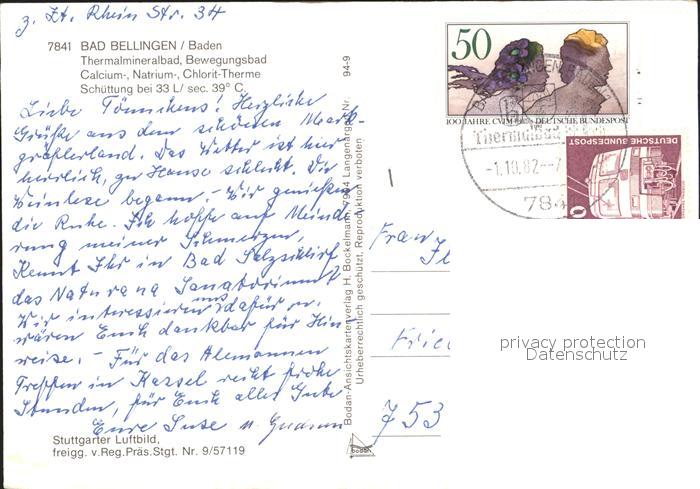 z. Zt. Rhein Str. 34
7841 BAD BELLINGEN / Baden
Thermalmineralbad, Bewegungsbad
Calcium-, Natrium-, Chlorit-Therme
Schüttung bei 33 L/ sec. 39° C.
Liebe Tönnchens! Herzliche
Grüße aus dem schönen Mark-
gräflerland. Das Wetter ist hier
herrlich, zu Hause schlecht. Die
Weinlese begann. - Wir genießen
die Ruhe. Ich hoffe auf Minde
rung meiner Schmerzen,
Kennt Ihr in Bad Salzschlirf
das Naturana Sanatorium?
Wir interessieren uns dafür u.
wären Euch dankbar für Hin
weise. - Für das Alemannen
Treffen in Kassel recht frohe
Stunden, für Euch alles Gute
Eure Suse u.
Stuttgarter Luftbild,
freigg. v.Reg.Präs.Stgt. Nr. 9/57119
94-9
Bodan-Ansichtskartenverlag H. Bockelmann, 7994 Langenargen Nr.
Urheberrechtlich geschützt, Reproduktion verboten
bodan
50
100 JAHRE CVJM DEUTSCHE BUNDESPOST
DEUTSCHE BUNDESPOST
Thermalbad
-1.10.82
784
Franz
Frie
753
privacy protection
Datenschutz